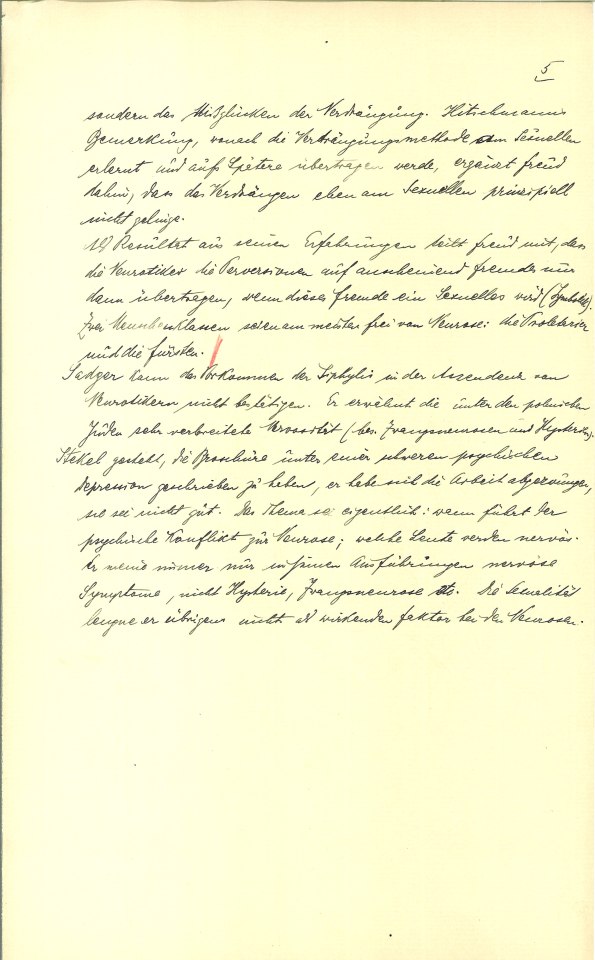 5
sondern das Mißglücken der Verdrängung. Hitschmanns
Bemerkung, wonach die Verdrängungsmethode am Sexuellen
erlernt und aufs Spätere übertragen werde, ergänzt Freud
dahin, dass das Verdrängen eben am Sexuellen prinzipiell
nicht gelinge.
Als Resultat aus seinen Erfahrungen teilt Freud mit, dass
die Neurotiker die Perversionen auf anscheinend fremdes nur
dann übertragen, wenn dieses fremde ein Sexuelles wird (Symbolik).
Zwei Menschenklassen seien am meisten frei von Neurose: die Proletarier
und die Fürsten.
Sadger kann das Vorkommen der Syphilis in der Aszendenz von
Neurotikern nicht bestätigen. Er erwähnt die unter den polnischen
Juden sehr verbreitete Nervosität (bes. Zwangsneurosen und Hysterien).
Stekel gesteht, die Broschüre unter einer schweren psychischen
Depression geschrieben zu haben, er habe sich die Arbeit abgezwungen,
sie sei nicht gut. Das Thema sei eigentlich: wann führt der
psychische Konflikt zur Neurose; welche Leute werden nervös.
Er meine immer nur in seinen Ausführungen nervöse
Symptome, nicht Hysterie, Zwangsneurose etc. Die Sexualität
leugne er übrigens nicht als wirkenden Faktor bei den Neurosen.